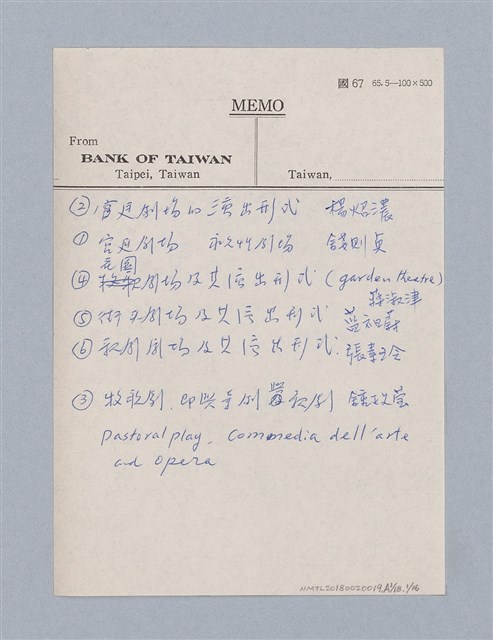 國 67 65.5—100×500
MEMO
From
BANK OF TAIWAN
Taipei, Taiwan
Taiwan,
② 宮廷劇場的演出形式 楊
① 宮廷劇場 劇場 錢則貞
花園
④ 劇場及其演出形式 (garden theatre)
蔣淑津
⑤ 街头劇場及其演出形式 藍祖蔚
⑥ 歌劇劇場及其演出形式 張
③ 牧歌劇、即興喜劇與歌劇 鍾
pastoral play, Commedia dell'arte
and opera
NMTL20180020019.